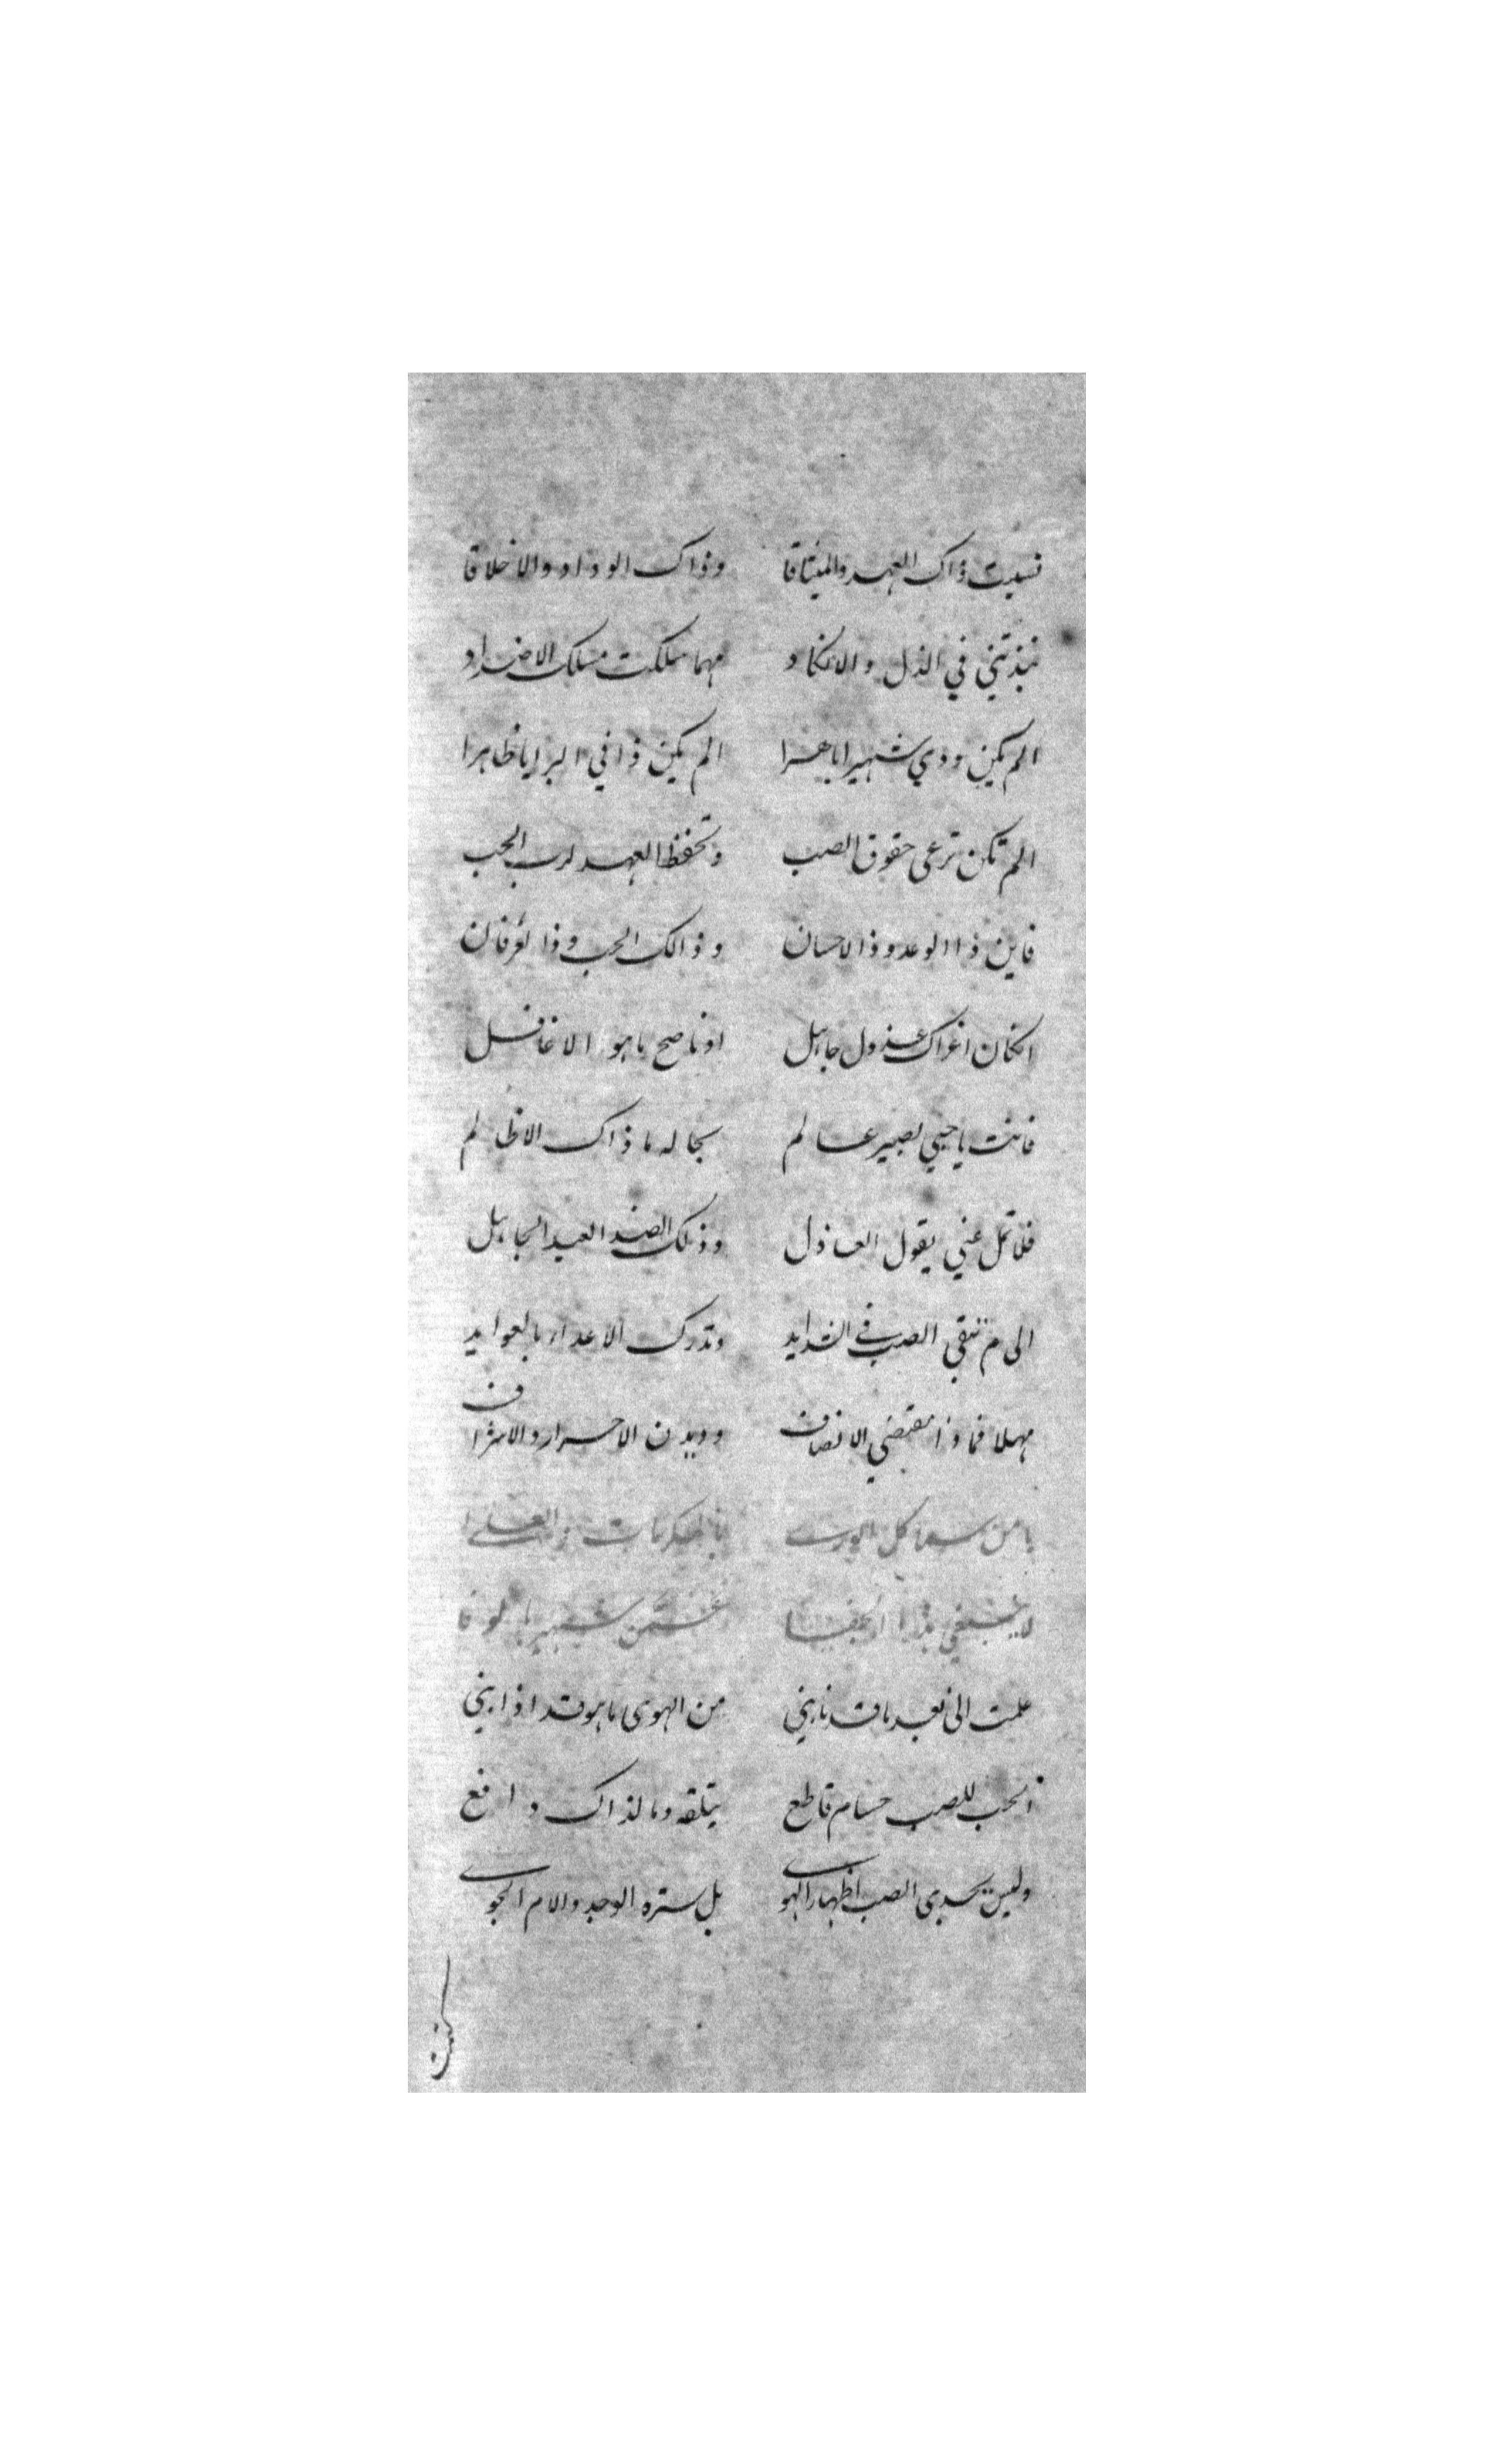 نسيت ذاك العهد والميثاقا وذاك الوداد والاخلاقا
نبذتني في الذل والانكاد مهما سلكت مسلك الاضداد
الم يكن ودي شهيرا باهرا الم يكن ذا في البرايا ظاهرا
الم تكن ترعى حقوق الصب وتحفظ العهد لرب الحب
فاين ذا الوعد وذا الاحسان وذالك الحب وذا العرفان
انكان اغراك عذول جاهل او ناصح ما هو الا غافل
فانت يا حبي بصير عالم بحاله ما ذاك الا ظالم
فلا تمل عني بقول العاذل وذلك الضد العبد الجاهل
الى م تبقي الصب في الشدايد وتدرك الاعداء بالعوايد
مهلا فما ذا مقتضي الانصاف وديدن الاحرار والاشراف
يا من سما كل الورى بالمكرمات والعلى
لا ينبغي هذا الجفا عمن شهير بالوفا
علمت اني بعد ما قد نابني من الهوى ما هو قد اذابني
الحب للصب حسام قاطع يتلفه وما لذاك دافع
وليس يجدى الصب اظهار الهوى بل ستره الوجد والام الجوى